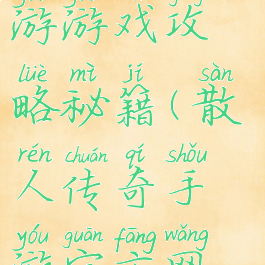 游游戏攻
lüè mì jí sàn
略秘籍(散
rén chuán qí shǒu
人传奇手
yóu guān fāng wǎng
游官方网